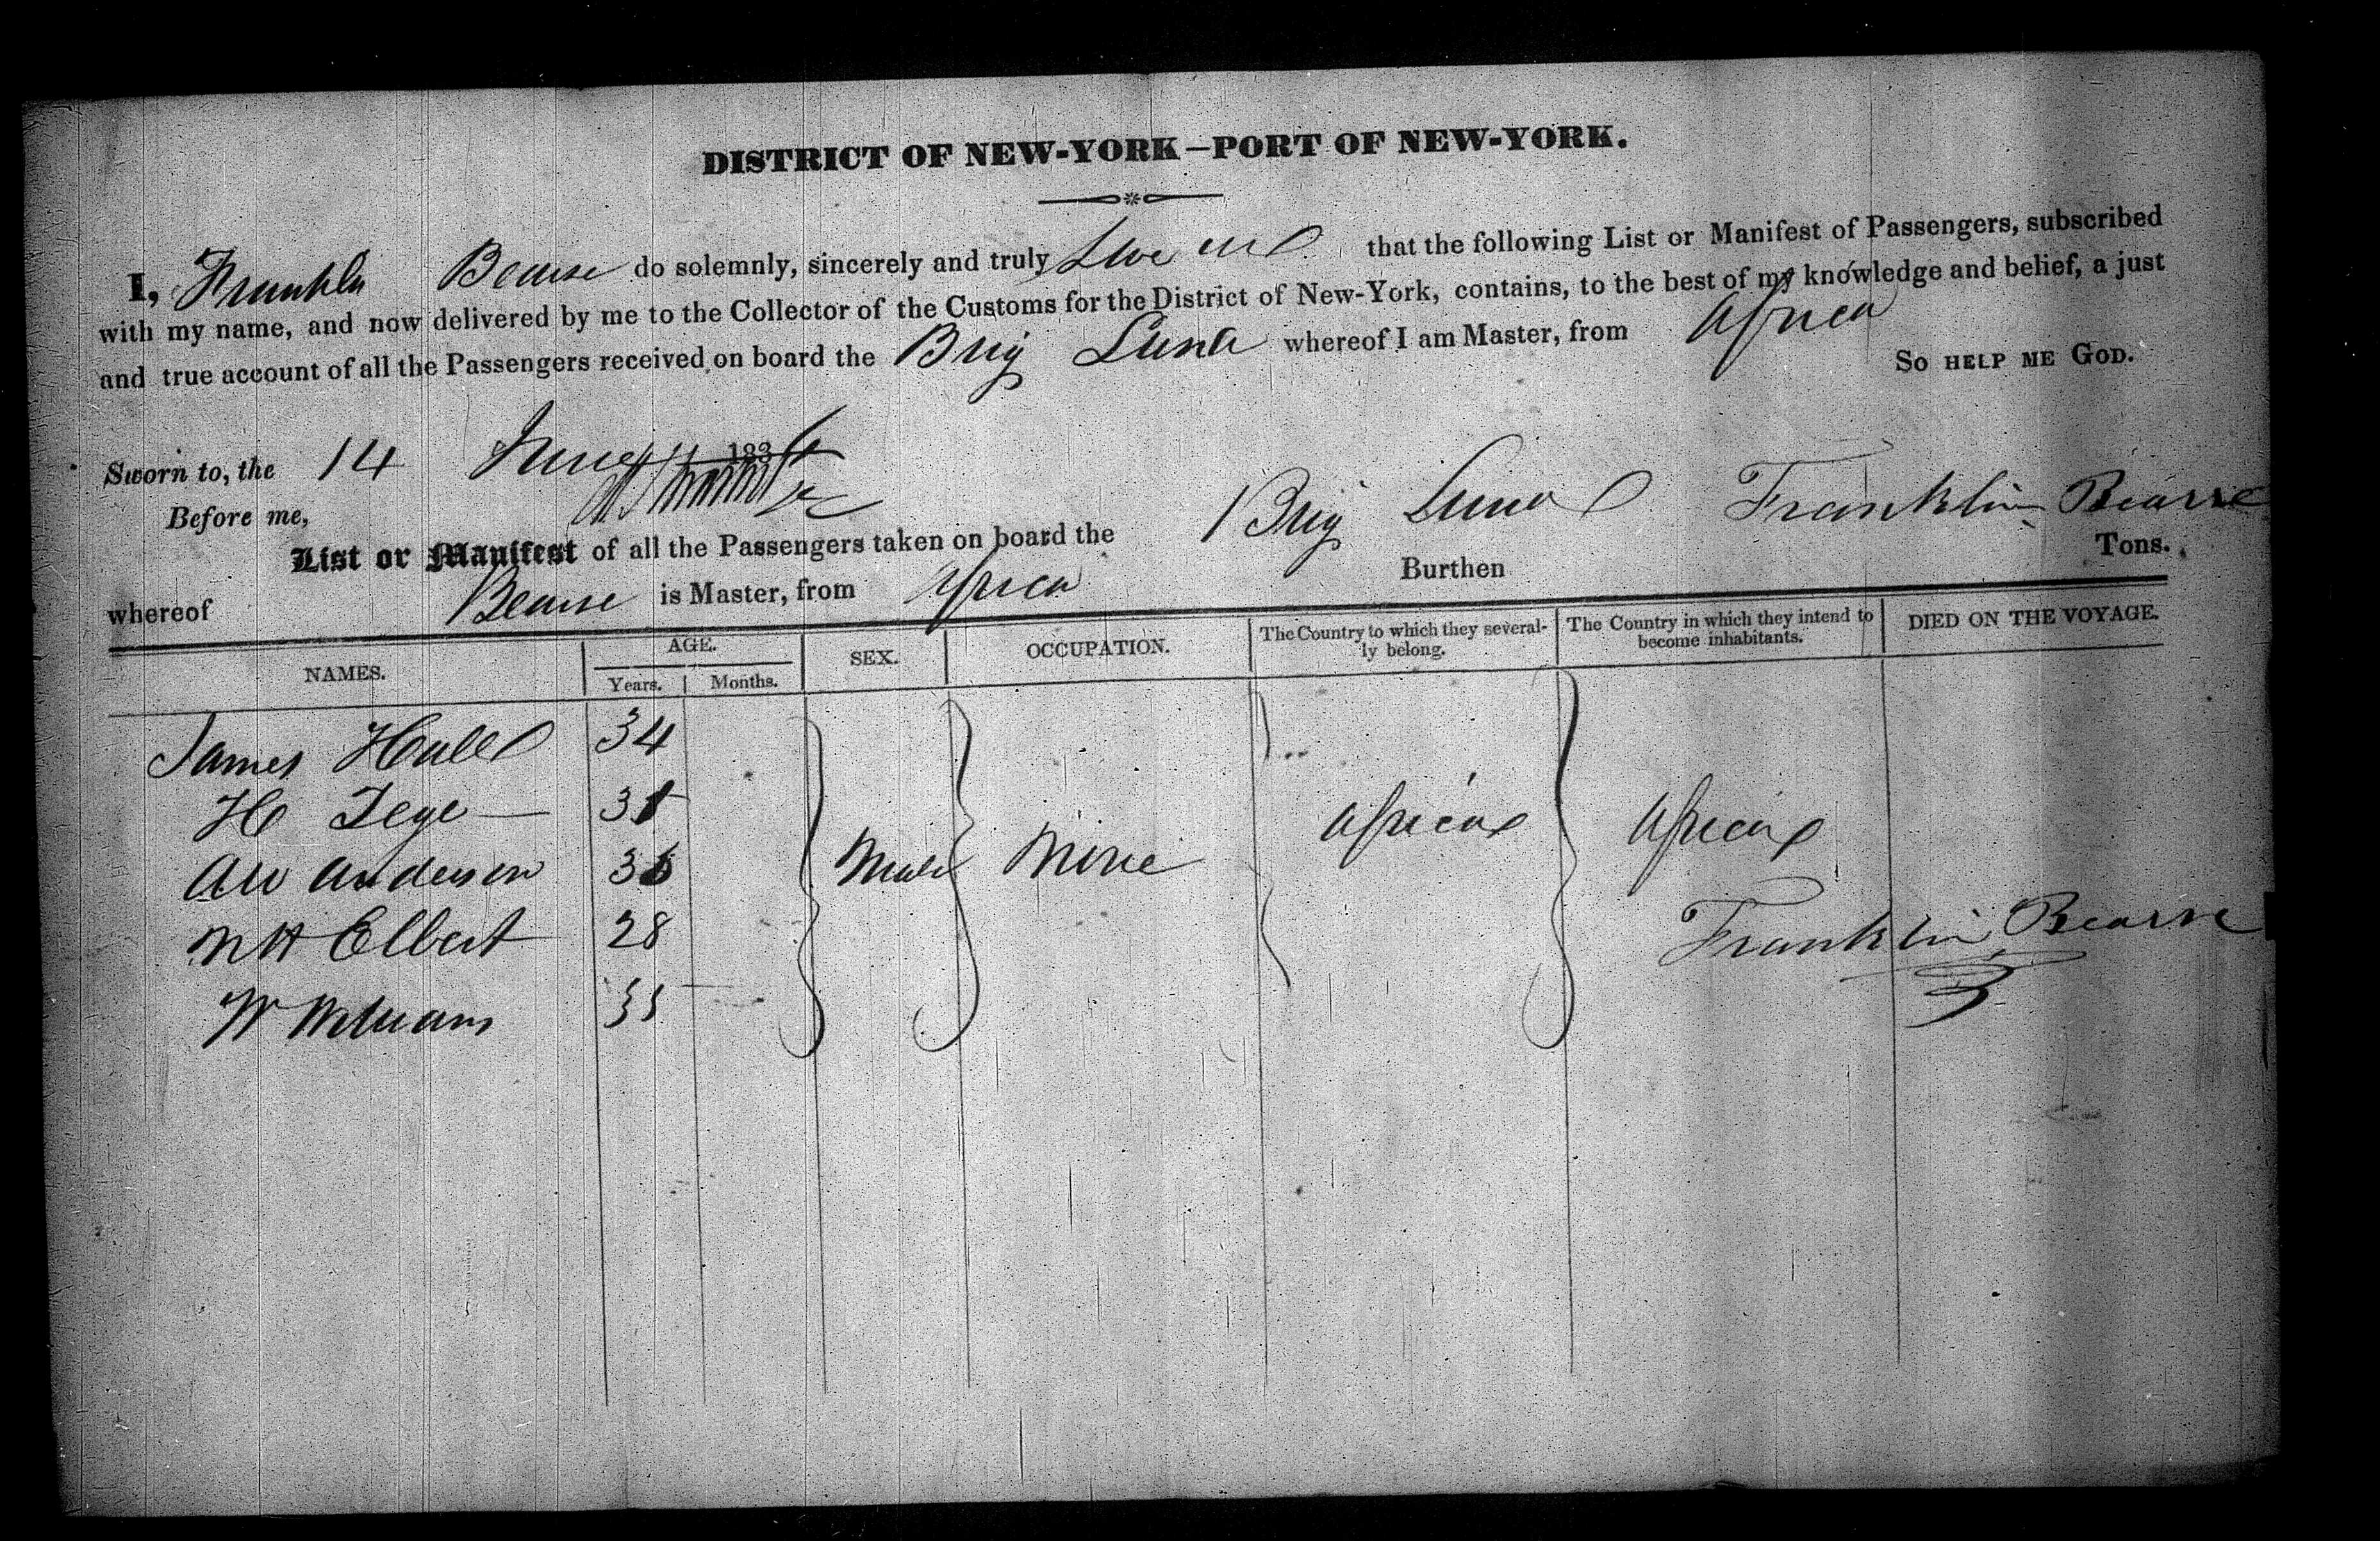 DISTRICT OF NEW-YORK—PORT OF NEW-YORK.
I, Franklin Bearse do solemnly, sincerely and truly Swear that the following List or Manifest of Passengers, subscribed
with my name, and now delivered by me to the Collector of the Customs for the District of New-York, contains, to the best of my knowledge and belief, a just
and true account of all the Passengers received on board the Brig Luna whereof I am Master, from Africa
So HELP ME GOD.
Sworn to, the 14 June 1836
Before me,
Franklin Bearse
List or Manifest of all the Passengers taken on board the Brig Luna
whereof Bearse is Master, from Africa Burthen Tons.
NAMES. AGE. Years. Months. SEX. OCCUPATION. The Country to which they severally belong. The Country in which they intend to become inhabitants. DIED ON THE VOYAGE.
James Hall 34
H 31
AW Anderson 36 Male None Africa Africa
NH Elbert 28
Franklin Bearse
W Williams 35